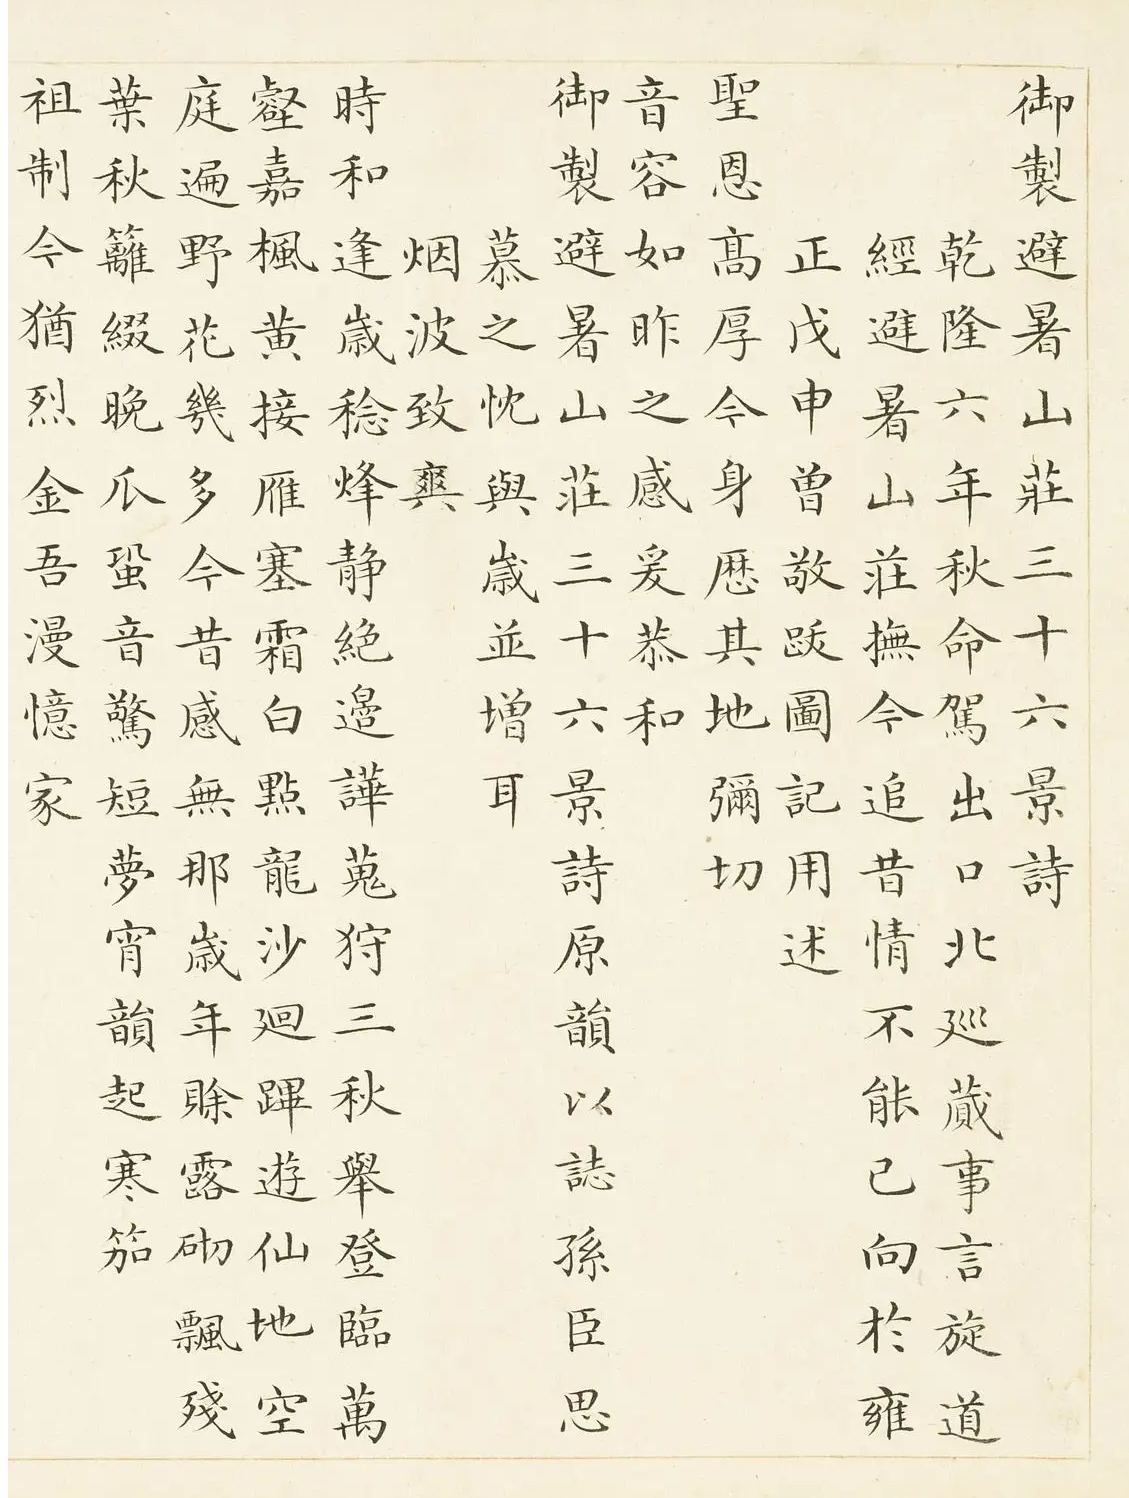 御製避暑山莊三十六景詩
乾隆六年秋命駕出口北巡蕆事言旋道
經避暑山莊撫今追昔情不能已向於雍
正戊申曽敬跋圖記用述
聖恩髙厚今身歷其地彌切
音容如昨之感爰恭和
御製避暑山莊三十六景詩原韻以誌孫臣思
慕之忱與歲並增耳
烟波致爽
時和逢歲稔烽静絶邉譁蒐狩三秋舉登臨萬
壑嘉楓黄接雁塞霜白點龍沙廻蹕遊仙地空
庭遍野花幾多今昔感無那歲年賒露砌飄殘
葉秋籬綴晚瓜蛩音驚短夢宵韻起寒笳
祖制今猶烈金吾漫憶家